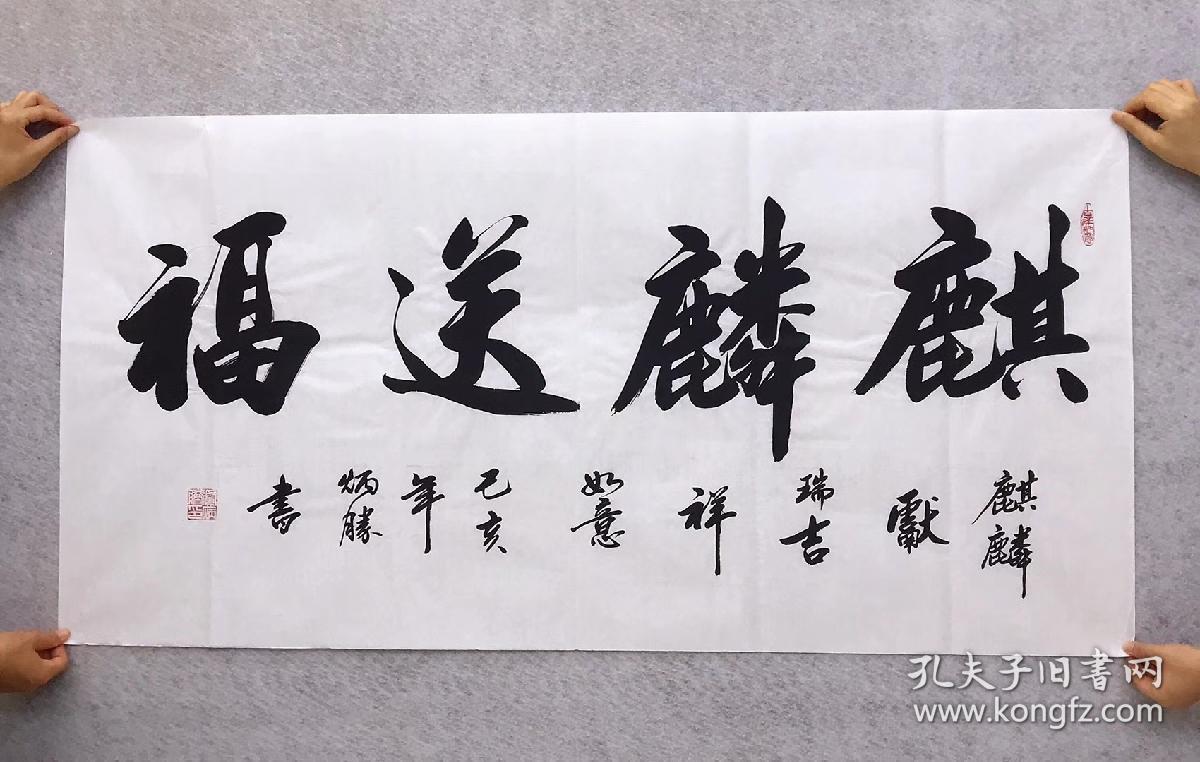 麒麟送福
麒麟
獻
瑞吉
祥
如意
己亥
年
炳勝
書
孔夫子旧书网
www.kongfz.com